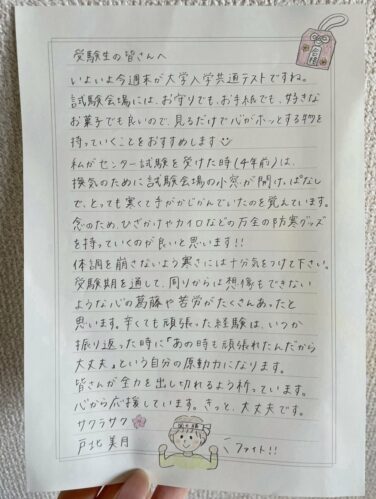 合格
受験生の皆さんへ
いよいよ今週末が大学入学共通テストですね。
試験会場には、お守りでも、お手紙でも、好きな
お菓子でも良いので、見るだけで心がホッとする物を
持っていくことをおすすめします
私がセンター試験を受けた時(4年前)は、
換気のために試験会場の小窓が開けっぱなし
で、とっても寒くて手がかじかんでいたのを覚えています。
念のため、ひざかけやカイロなどの万全の防寒グッズ
を持っていくのが良いと思います!!
体調を崩さないよう寒さには十分気をつけて下さい。
受験期を通して、周りからは想像もできない
ような心の葛藤や苦労がたくさんあったと
思います。辛くても頑張った経験は、いつか
振り返った時に「あの時も頑張れたんだから
大丈夫」という自分の原動力になります。
皆さんが全力を出し切れるよう祈っています。
心から応援しています。きっと、大丈夫です。
サクラサク
戸北美月
ファイト!!